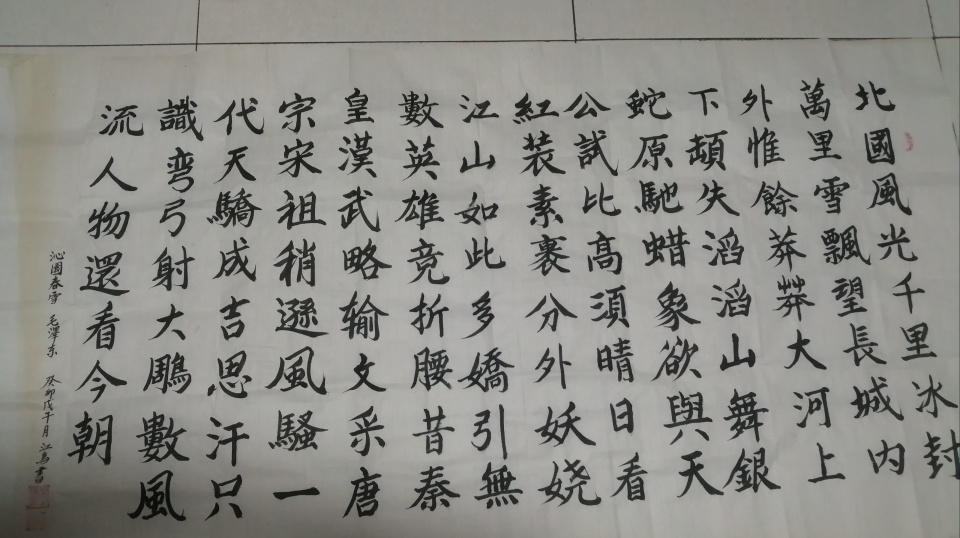 北國風光千里冰封
萬里雪飄望長城内
外惟餘莽莽大河上
下頓失滔滔山舞銀
蛇原馳蜡象欲與天
公試比高須晴日看
紅装素裹分外妖娆
江山如此多嬌引無
數英雄竞折腰昔秦
皇漢武略输文采唐
宗宋祖稍遜風騷一
代天驕成吉思汗只
識弯弓射大鵰數風
流人物還看今朝
沁園春雪 毛澤东 癸卯戊午月 書